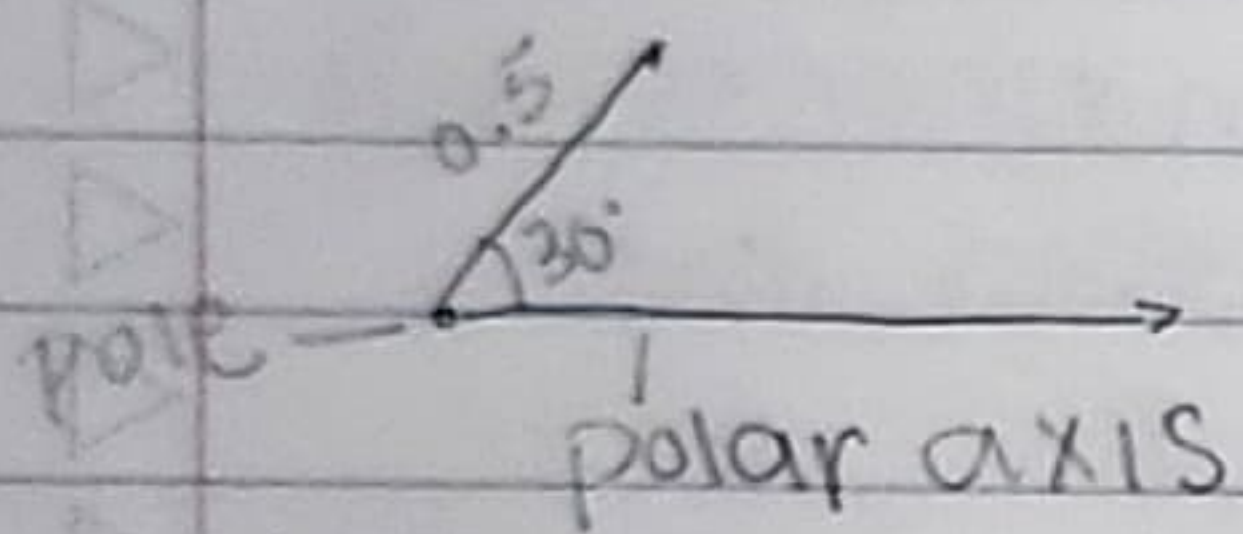 0.5
30°
pole
polar axis